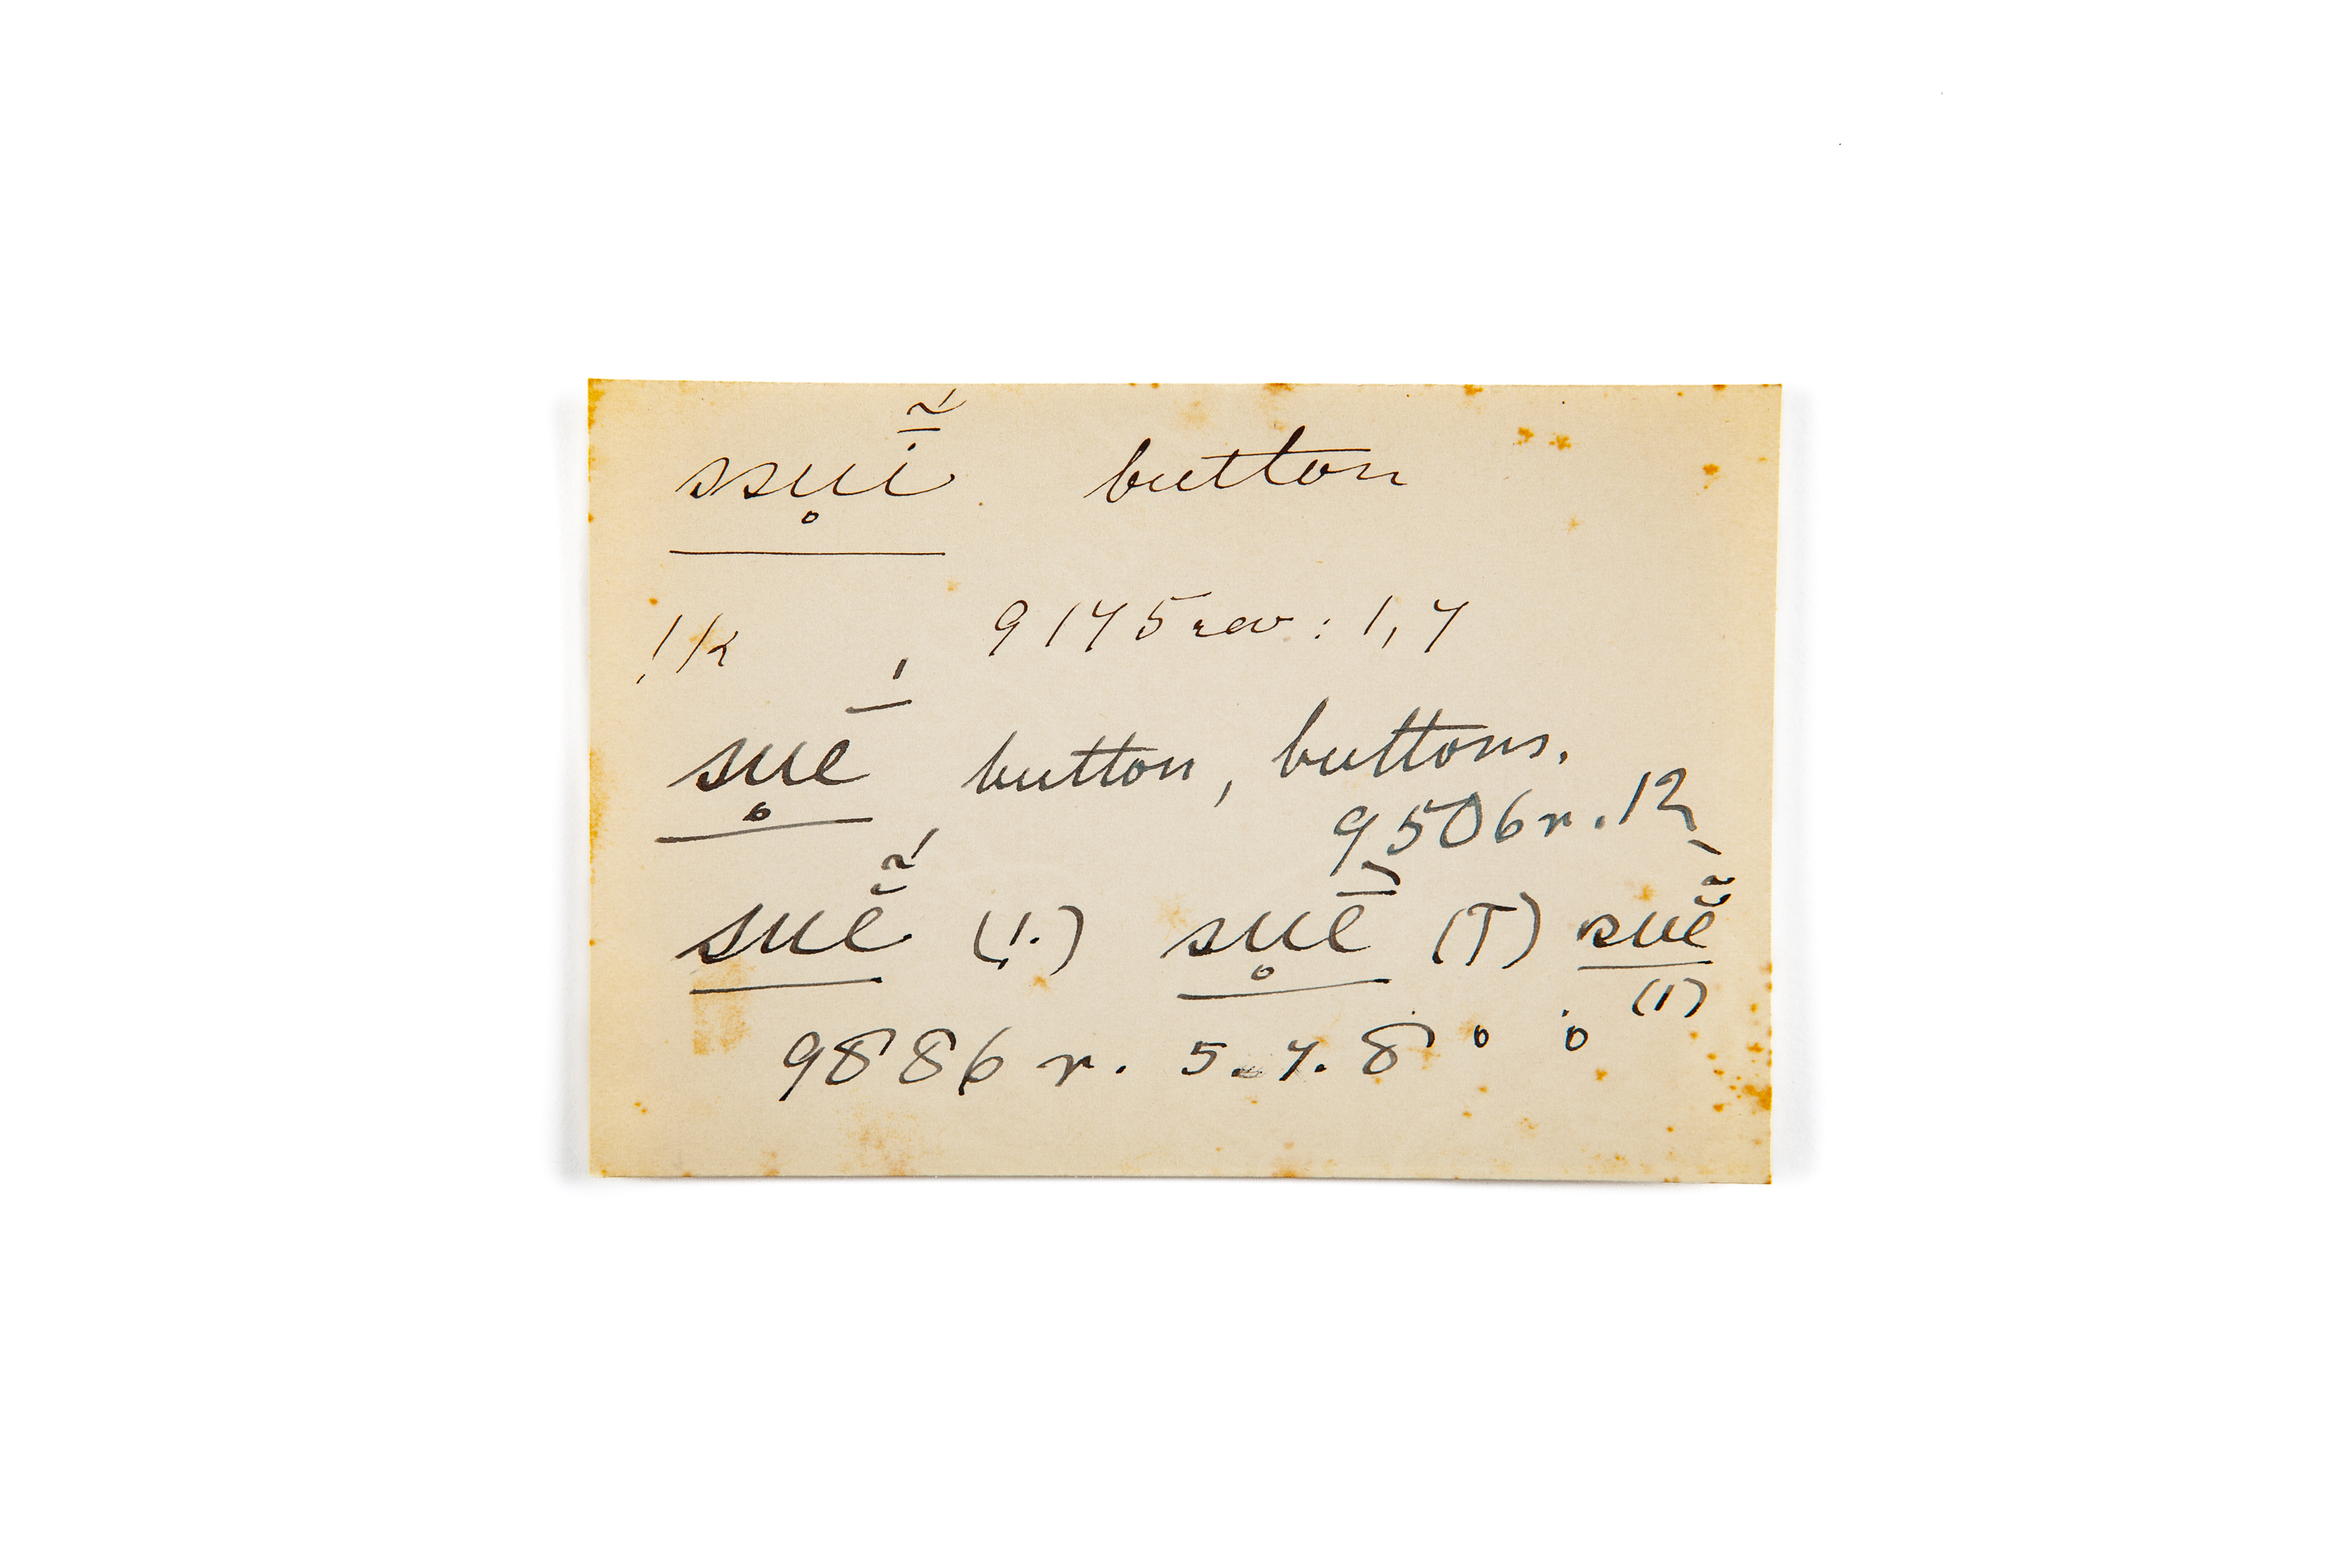 ssu̥ī̃́ button
!k 9175 rev: 1, 7
su̥ḗ button, buttons.
9506 r. 12
suĕ̃́ (!.) su̥ḕ (T) suĕ̃̀ (1)
9886 r. 5. 7. 8